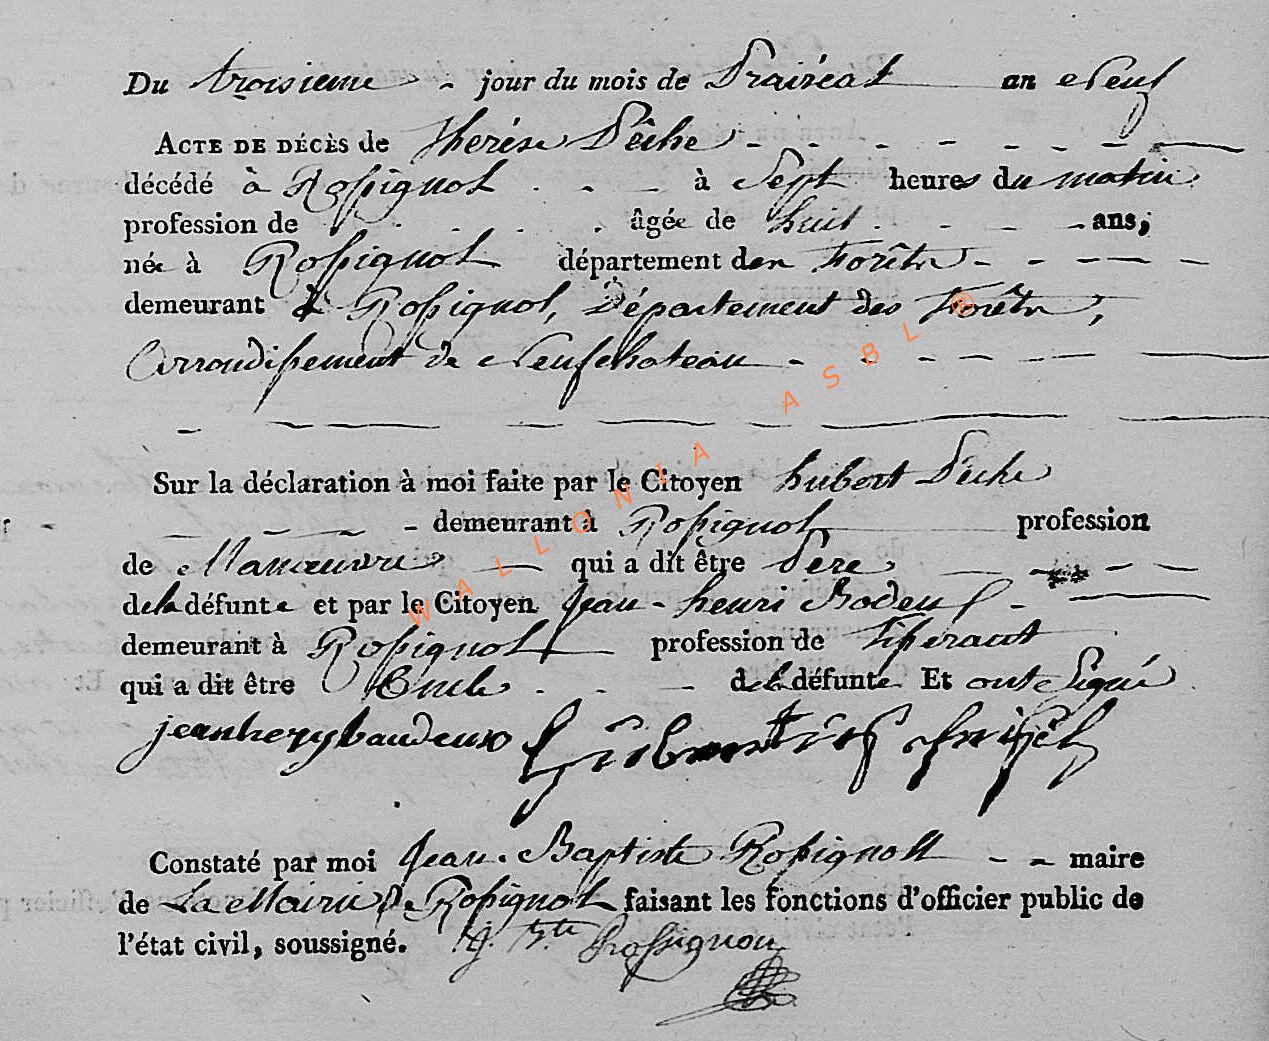 Du troisieme - jour du mois de Prairéal an Neuf
ACTE DE DÉCÈS de thérése Pêche - - - - - - -
décédé à Rossignol . - - à Sept heures du matin
profession de . . . . . âgée de huit . - - - ans,
née à Rossignol département des Forêts - - - - -
demeurant à Rossignol, Département des Forêts,
Arrondissement de Neufchateau - - - - -
Sur la déclaration à moi faite par le Citoyen hubert Pêche
- demeurant à Rossignol profession
de Manœuvre — qui a dit être Pere
de la défunte et par le Citoyen Jean - henri Bodeux -
demeurant à Rossignol profession de Tisserant
qui a dit être Oncle . . - de la défunte Et ont Signé
jeanhenrybaudeux
Constaté par moi Jean . Baptiste Rossignoll - - maire
de La Mairie de Rossignol faisant les fonctions d'officier public de
l'état civil, soussigné. J. Bte Rossignon
WALLONIA ASBL ®